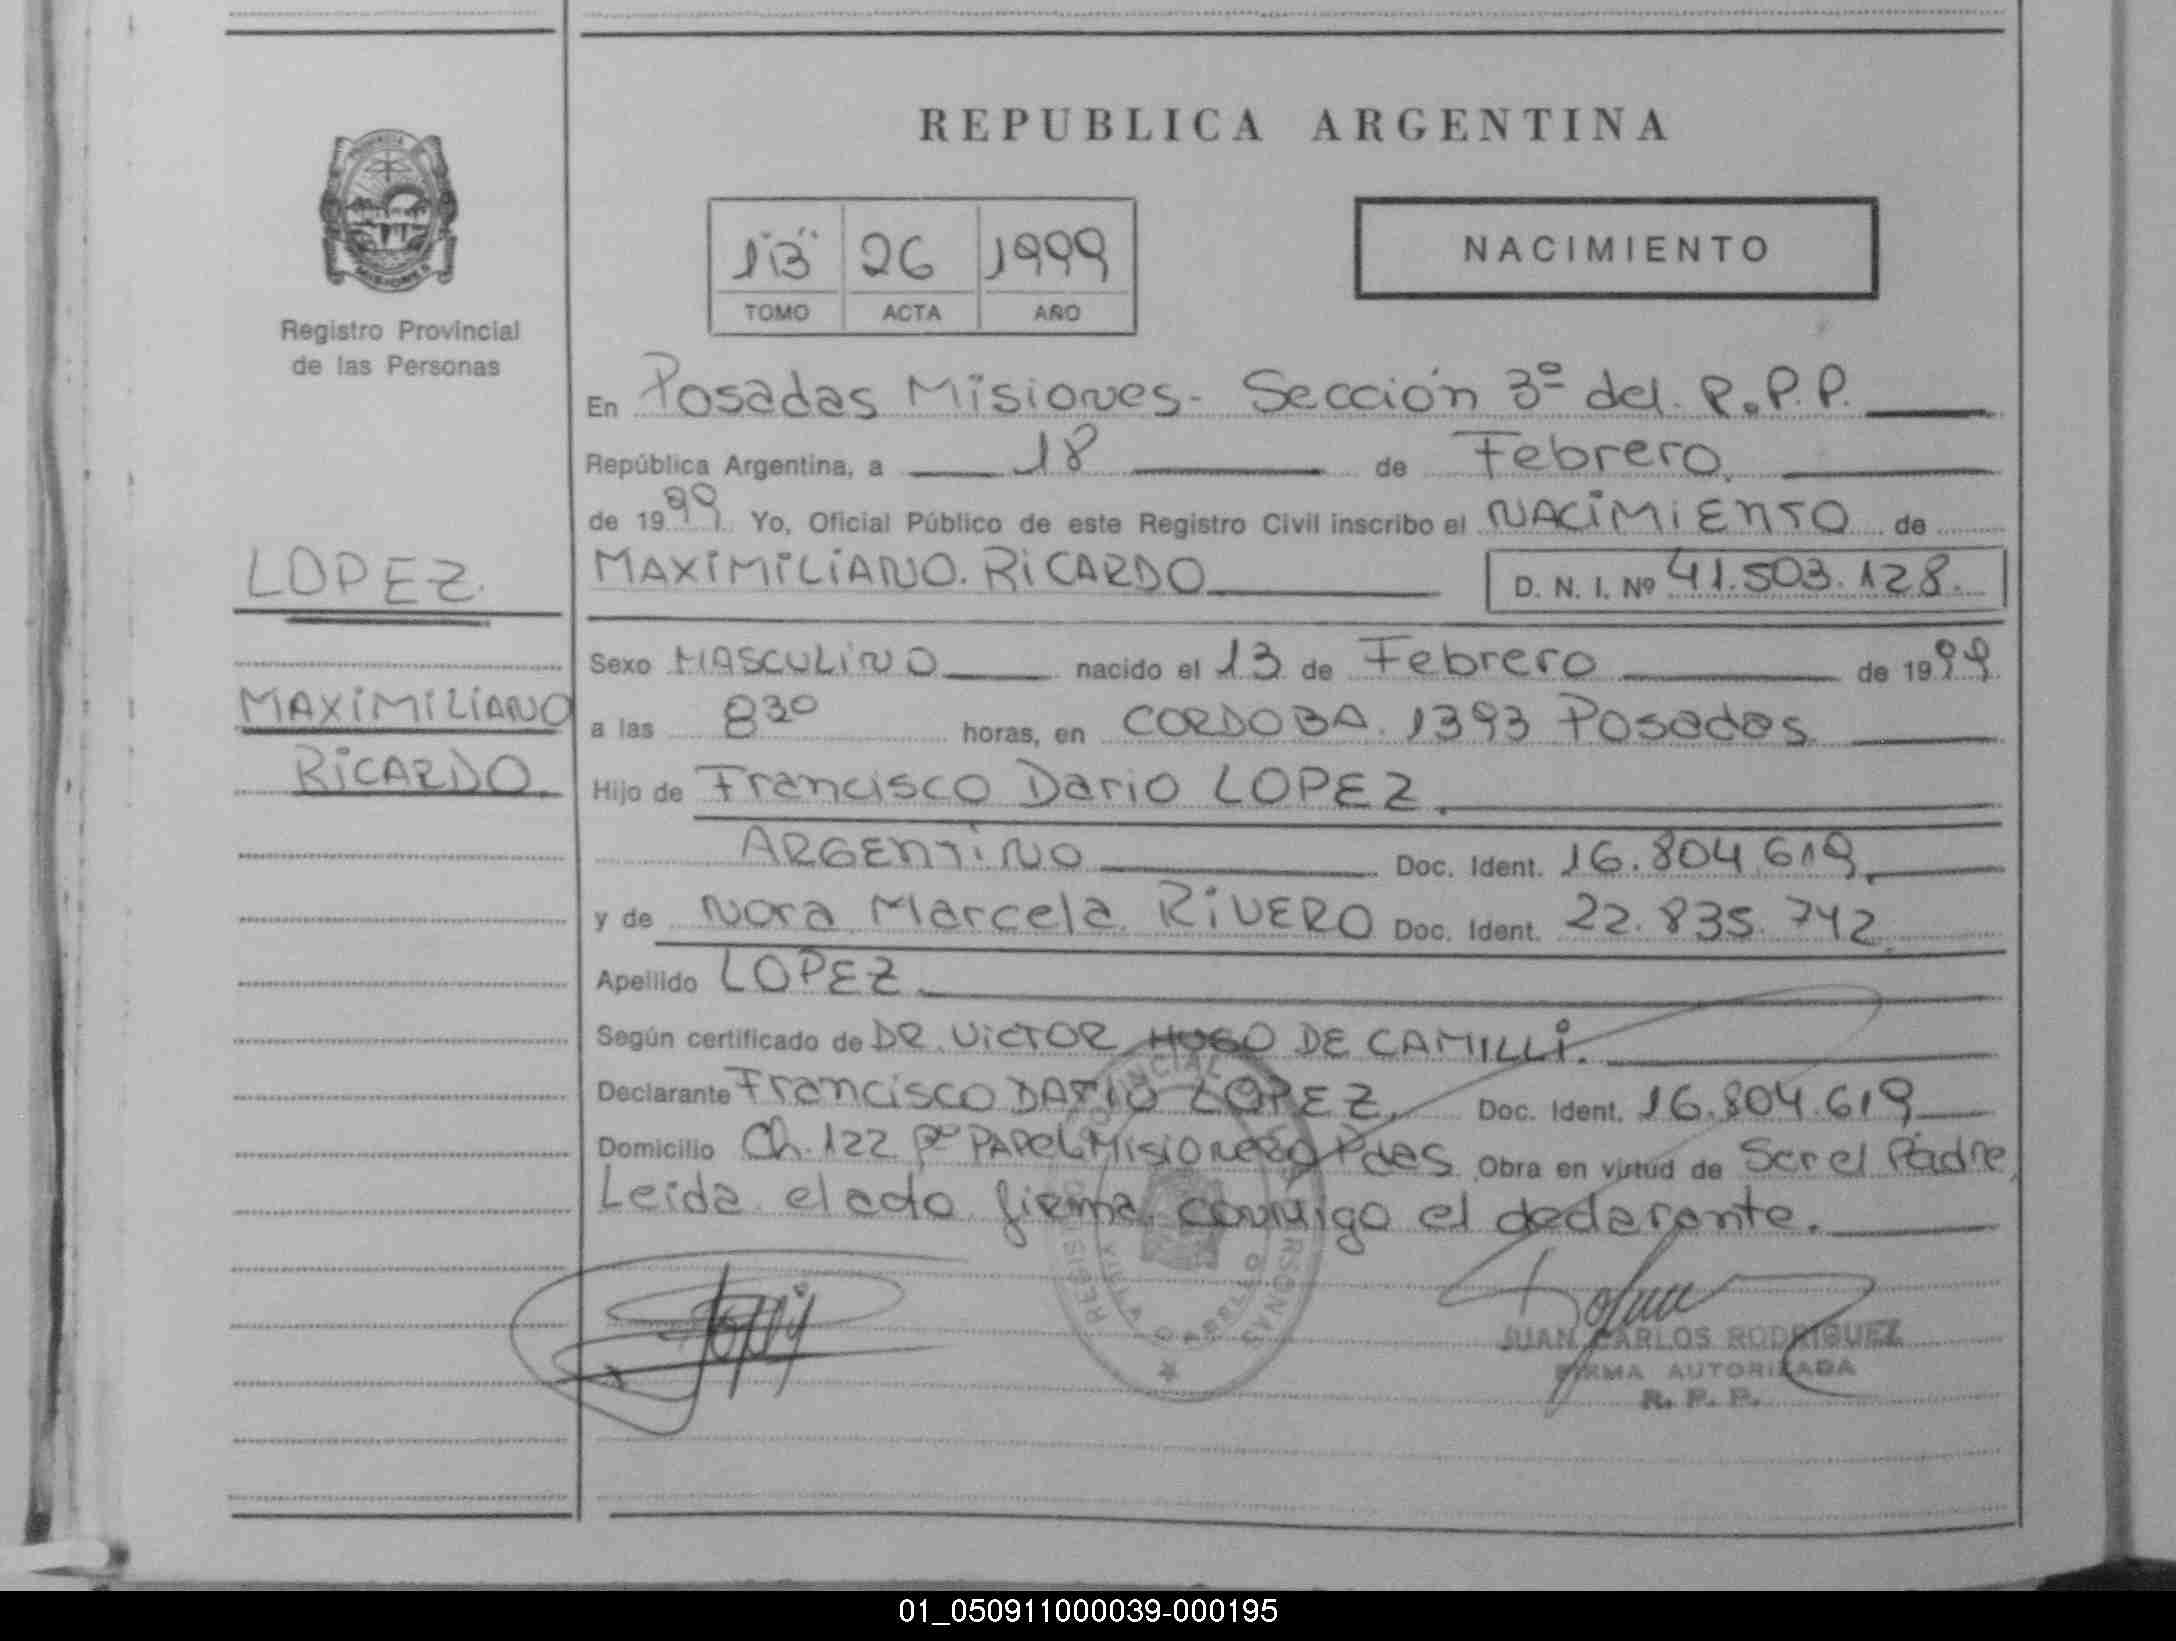 REPUBLICA ARGENTINA
1"B" 26 1999
TOMO ACTA AÑO
NACIMIENTO
Registro Provincial
de las Personas
En Posadas Misiones- Sección 3º del R.P.P.
República Argentina, a 18 de Febrero.
de 1999. Yo, Oficial Público de este Registro Civil inscribo el NACIMIENTO de
LOPEZ.
MAXIMILIANO. RICARDO D. N. I. Nº 41.503.128.
Sexo MASCULINO nacido el 13 de Febrero de 1999.
MAXIMILIANO
RICARDO.
a las 8 30 horas, en CORDOBA. 1393 Posadas
Hijo de Francisco Dario LOPEZ.
ARGENTINO Doc. Ident. 16.804.619.
y de Nora Marcela RIVERO Doc. Ident. 22.835.742.
Apellido LOPEZ.
Según certificado de DR. VICTOR HUGO DE CAMILLI.
Declarante Francisco DARIO LOPEZ. Doc. Ident. 16.804.619.
Domicilio Ch. 122 Bº PAPEL Misionero Pdas Obra en virtud de Ser el Padre,
Leida el acto firma conmigo el declarante.
JUAN CARLOS RODRIGUEZ
FIRMA AUTORIZADA
R. P. P.
01_050911000039-000195